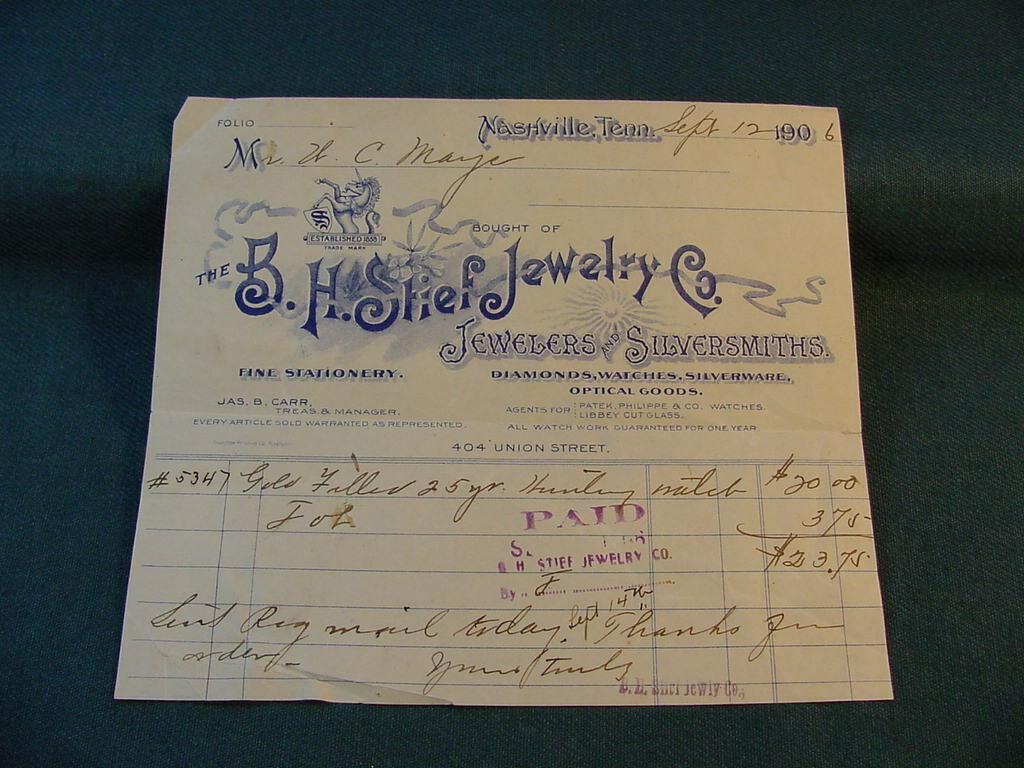 FOLIO
Nashville, Tenn. Sept 12 1906
Mr. W. C. Mays
ESTABLISHED 1858
TRADE MARK
BOUGHT OF
THE B. H. Stief Jewelry Co.
JEWELERS AND SILVERSMITHS.
FINE STATIONERY.
DIAMONDS, WATCHES, SILVERWARE,
OPTICAL GOODS.
JAS. B. CARR,
TREAS. & MANAGER.
AGENTS FOR PATEK, PHILIPPE & CO. WATCHES.
LIBBEY CUT GLASS.
EVERY ARTICLE SOLD WARRANTED AS REPRESENTED.
ALL WATCH WORK GUARANTEED FOR ONE YEAR.
404 UNION STREET.
#5347 Gold Filled 25 yr. Hunting watch $20 00
Fob 3 75
PAID
B H STIEF JEWELRY CO.
$23.75
By
Sent Reg mail today, Sept 14th Thanks for
order-
Yours truly
B. H. Stief Jewly Co.,